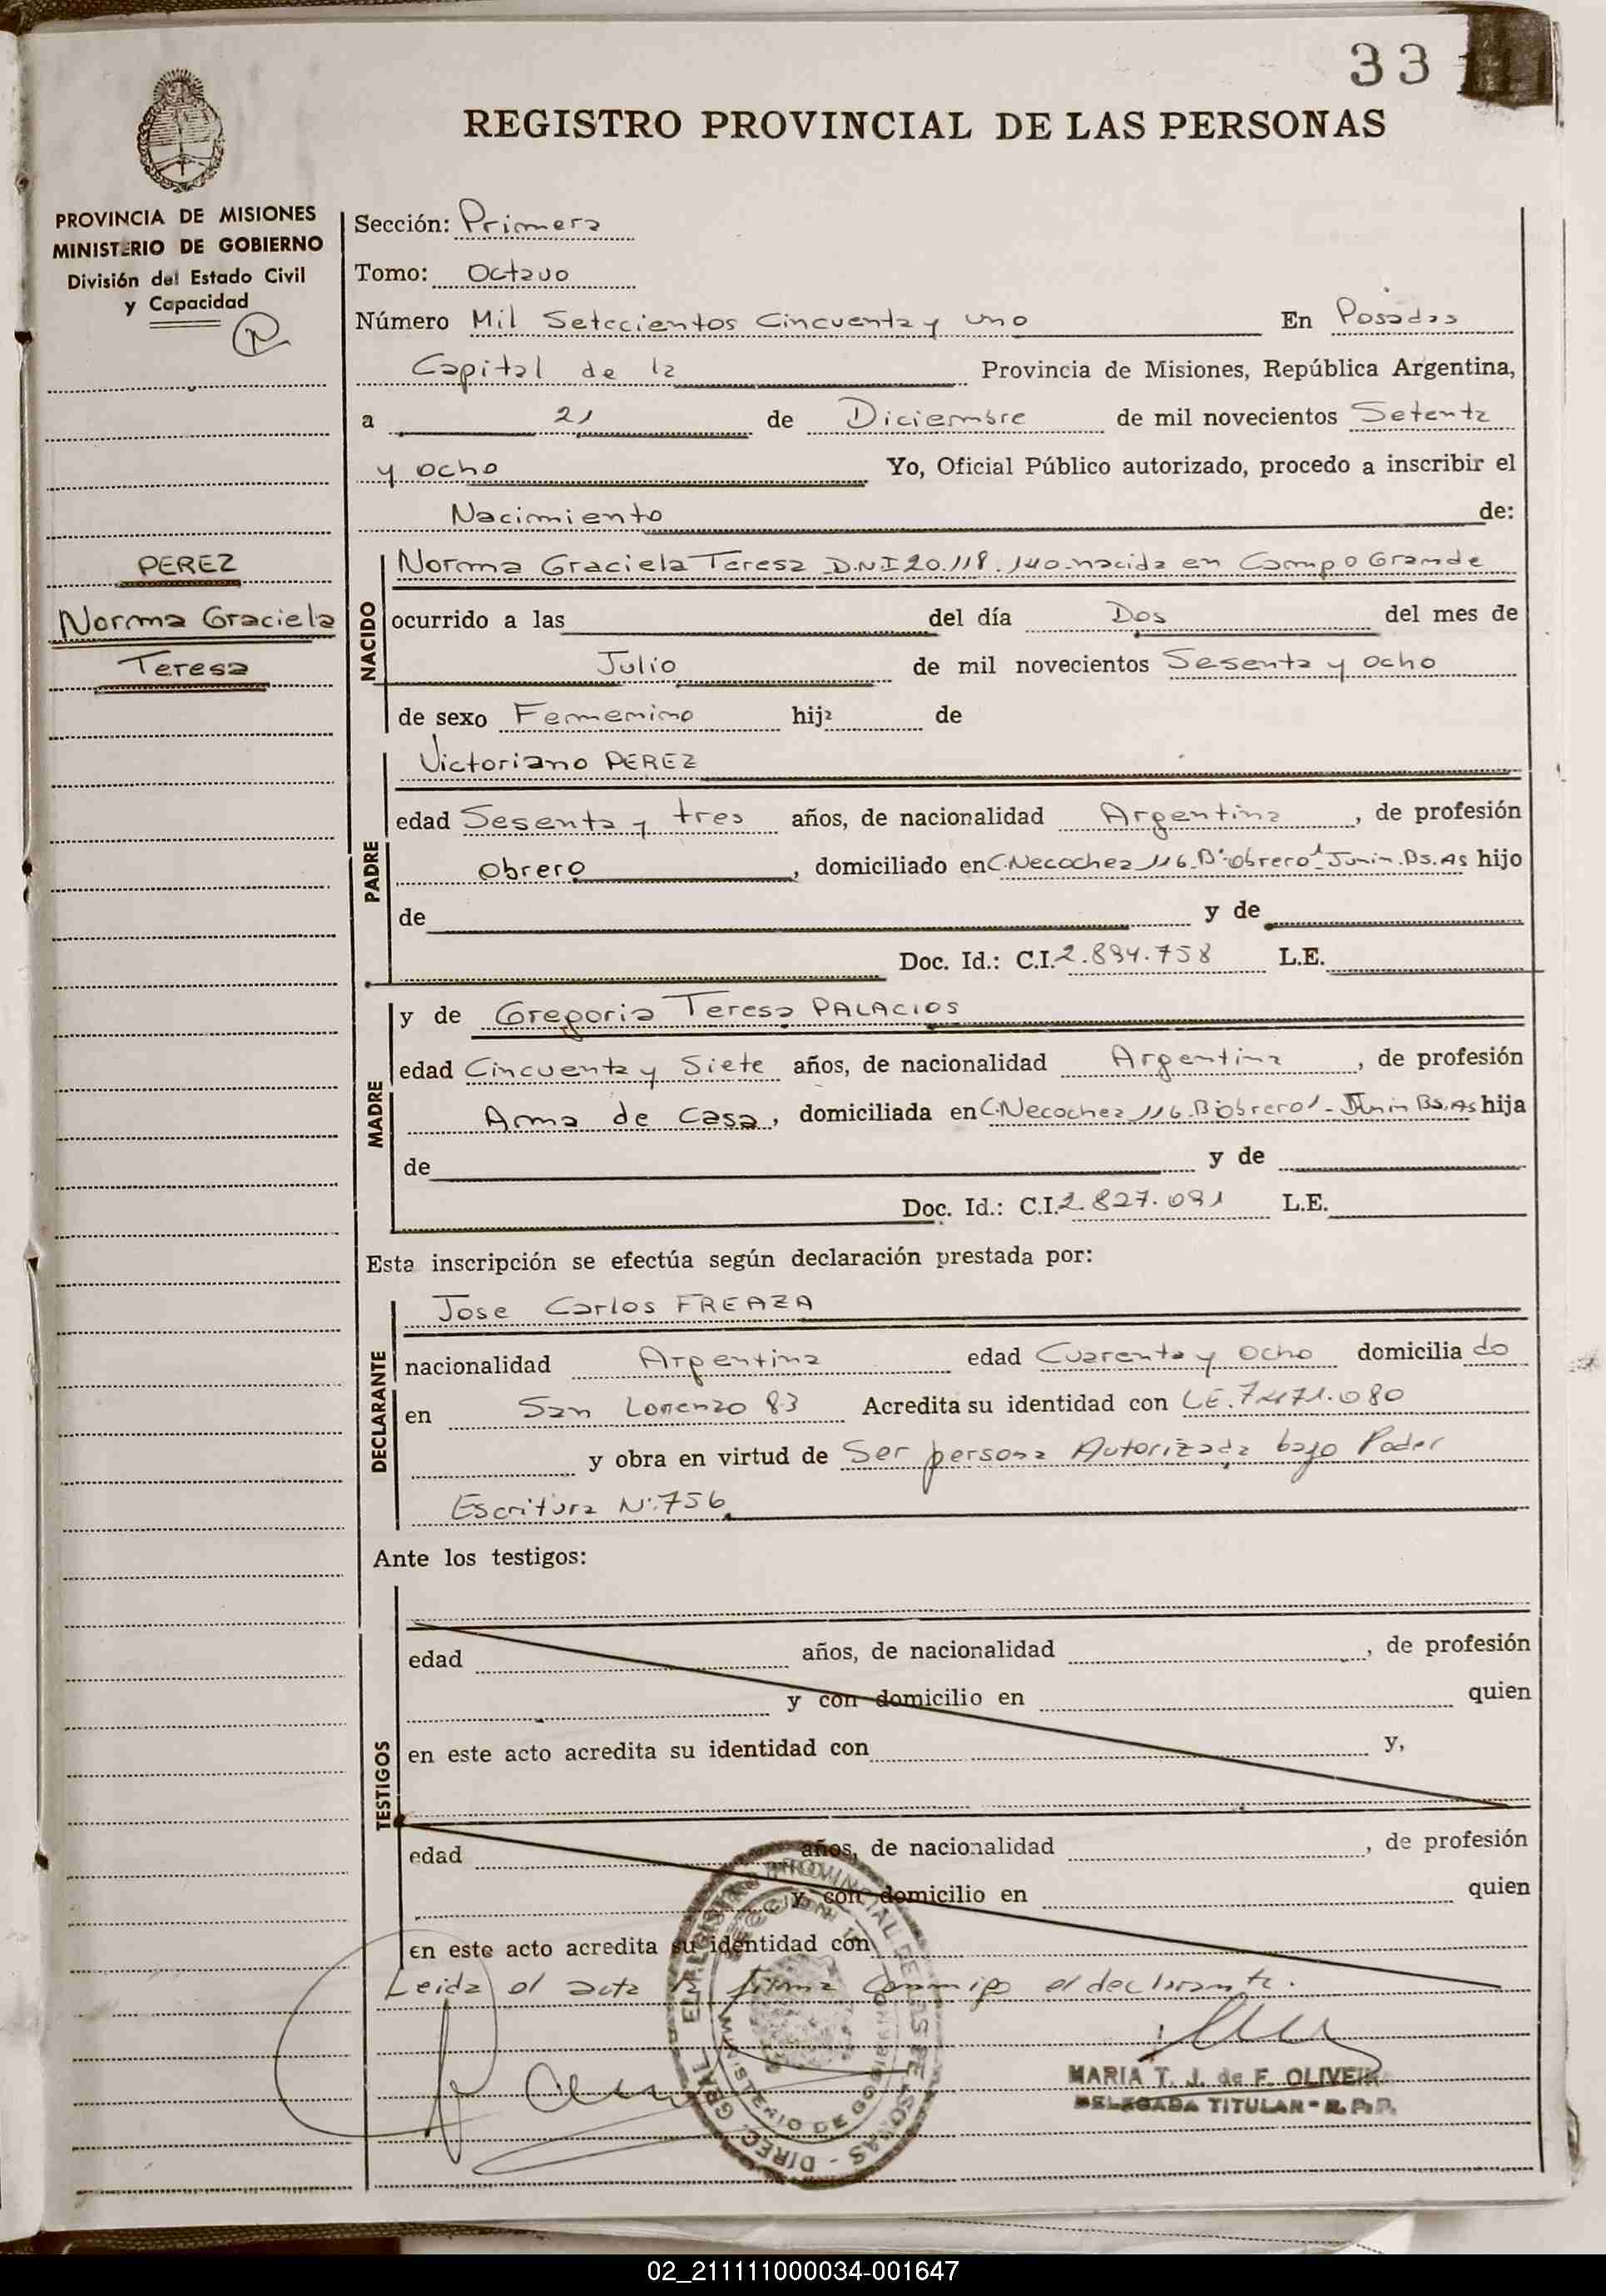 33
REGISTRO PROVINCIAL DE LAS PERSONAS
PROVINCIA DE MISIONES
MINISTERIO DE GOBIERNO
División del Estado Civil
y Capacidad
Sección: Primera
Tomo: Octavo
Número Mil Setecientos Cincuenta y uno En Posadas
Capital de la Provincia de Misiones, República Argentina,
a 21 de Diciembre de mil novecientos Setenta
y ocho Yo, Oficial Público autorizado, procedo a inscribir el
Nacimiento de:
PEREZ
Norma Graciela
Teresa
NACIDO
Norma Graciela Teresa D.N.I 20.118.140 nacida en Campo Grande
ocurrido a las del día Dos del mes de
Julio de mil novecientos Sesenta y ocho
de sexo Femenino hija de
PADRE
Victoriano PEREZ
edad Sesenta y tres años, de nacionalidad Argentina, de profesión
obrero, domiciliado en C. Necochea 116 B° obrero 1 Junin. Bs. As hijo
de y de
Doc. Id.: C.I. 2.894.758 L.E.
MADRE
y de Gregoria Teresa PALACIOS
edad Cincuenta y Siete años, de nacionalidad Argentina, de profesión
Ama de Casa, domiciliada en C. Necochea 116 B obrero 1 - Junin Bs. As hija
de y de
Doc. Id.: C.I. 2.827.091 L.E.
Esta inscripción se efectúa según declaración prestada por:
DECLARANTE
Jose Carlos FREAZA
nacionalidad Argentina edad Cuarenta y ocho domicilia do
en San Lorenzo 83 Acredita su identidad con LE. 7.471.080
y obra en virtud de Ser persona Autorizada bajo Poder
Escritura N° 756.
Ante los testigos:
TESTIGOS
edad años, de nacionalidad , de profesión
y con domicilio en quien
en este acto acredita su identidad con y,
edad años, de nacionalidad , de profesión
y con domicilio en quien
en este acto acredita su identidad con
Leida el acta la firma conmigo el declarante.
REGISTRO PROVINCIAL DE LAS PERSONAS - DIREC. GRAL. DEL
SECCION 1
MINISTERIO DE GOBIERNO
MARIA T. J. de F. OLIVEIRA
DELEGADA TITULAR - R. P. P.
02_211111000034-001647